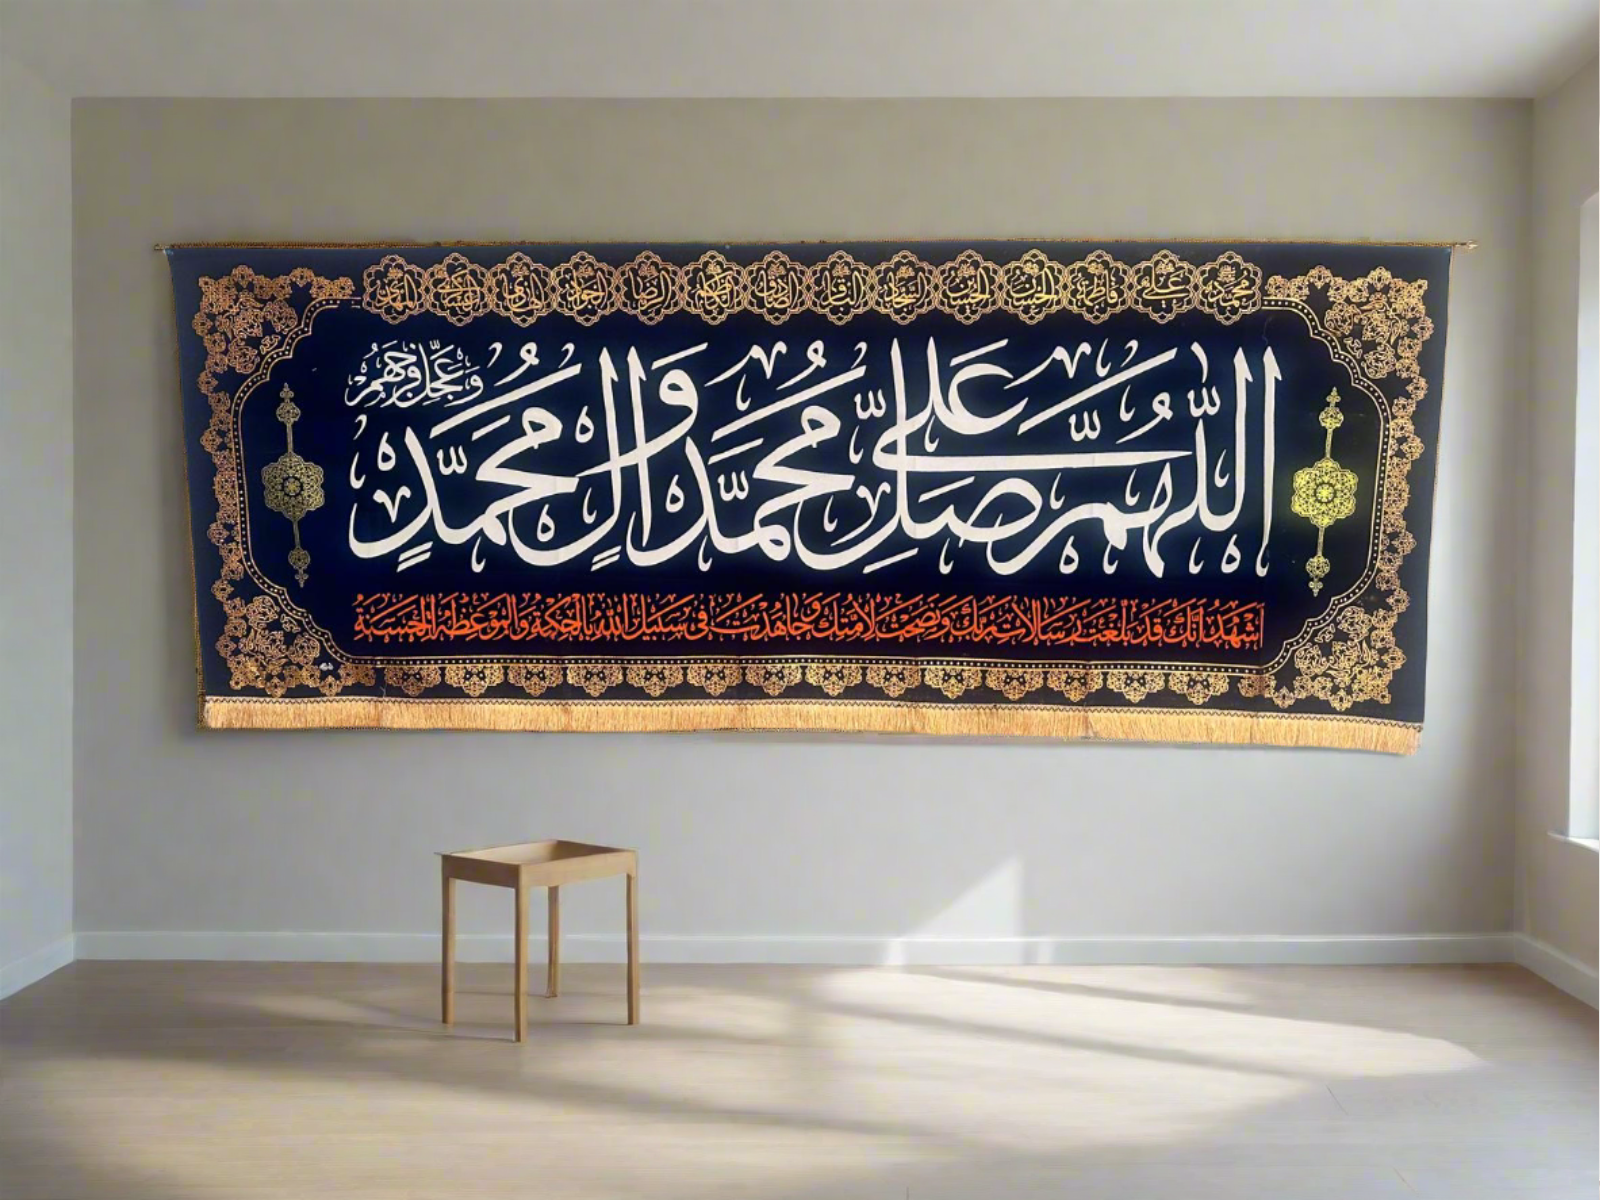 محمد علي فاطمة الحسن الحسين السجاد الباقر الصادق الكاظم الرضا الجواد الهادي العسكري المهدي
اللّٰهُمَّ صَلِّ عَلىٰ مُحَمَّدٍ وَآلِ مُحَمَّدٍ
وَعَجِّلْ فَرَجَهُمْ
اشهد انك قد بلغت رسالات ربك ونصحت لامتك وجاهدت في سبيل الله بالحكمة والموعظة الحسنة